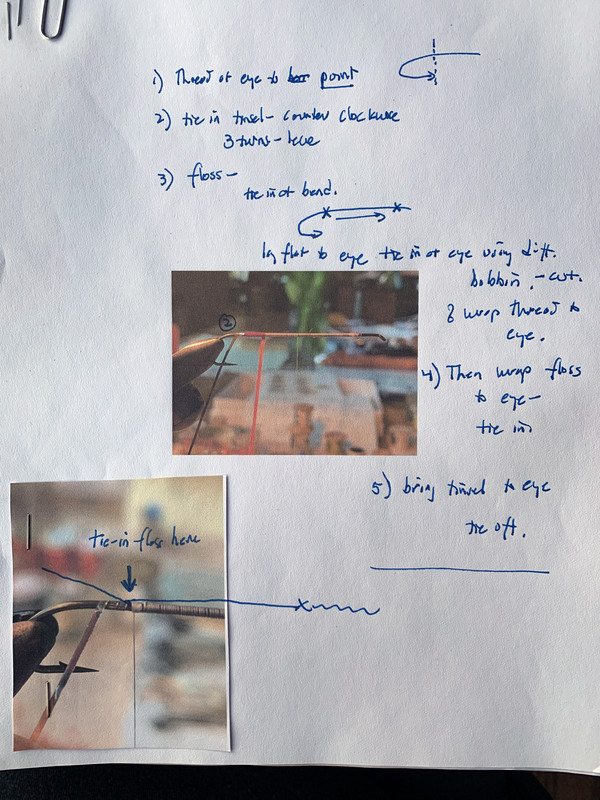 1) Thread at eye to point
2) tie in tinsel – counter clockwise
3 turns – leave
3) floss –
tie in at bend.
lay flat to eye tie in at eye using diff.
bobbin, – cut.
& wrap thread to
eye.
②
4) Then wrap floss
to eye –
tie in
5) bring tinsel to eye
tie off.
tie-in floss here